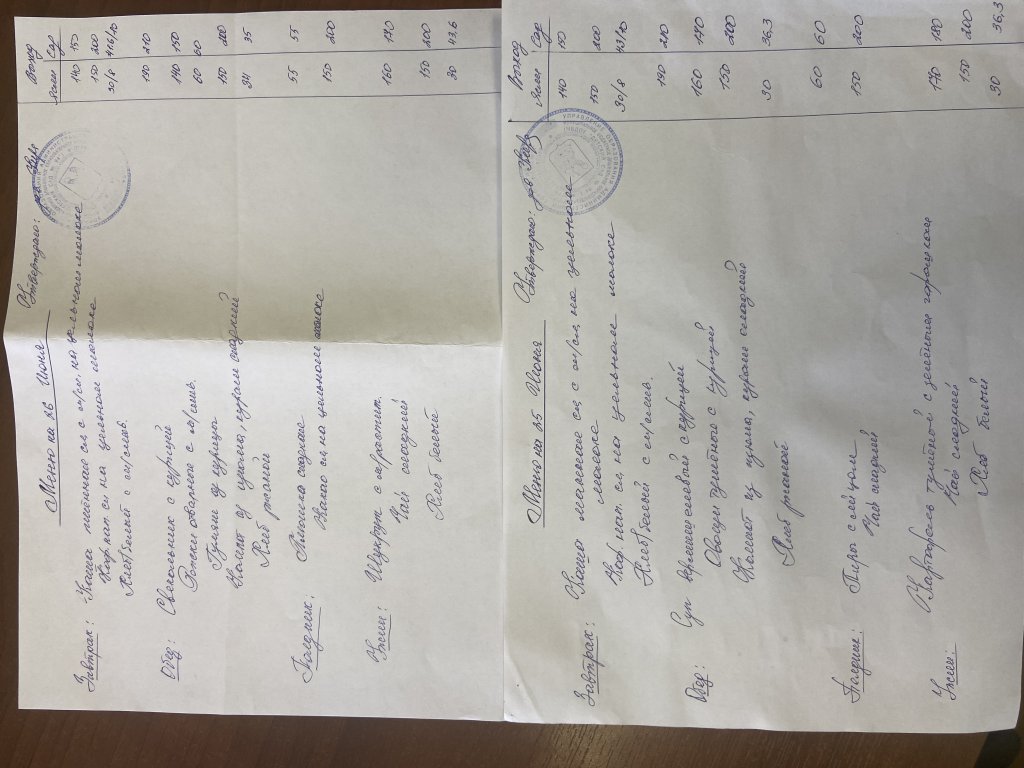 Меню на 26 Июня
Утверждаю:
Выход
Ясли Сад
Завтрак: Каша пшенная сл с м/сл на цельном молоке 140 150
Коф. нап. сл на цельном молоке 150 200
Хлеб белый с м/слив. 30/8
Обед: Свекольник с курицей 190 210
Рожки отварные с м/слив. 140 150
Гуляш из курицы 60 60
Компот из изюма, кураги сладкий 150 200
Хлеб ржаной 35
Полдник: 55 55
Какао сл на цельном молоке 150 200
Ужин: 160 170
Чай сладкий 150 200
Хлеб белый 30 43,6
Меню на 25 Июня
Утверждаю: зав
Выход
Ясли Сад
Завтрак: Каша манная сл с м/сл на цельном 140 150
молоке
Коф. нап. сл на цельном молоке 150 200
Хлеб белый с м/слив. 30/8 43/10
Обед: Суп вермишелевый с курицей 190 210
Овощи тушеные с курицей 160 170
Компот из изюма, кураги сладкий 150 200
Хлеб ржаной 30 36,3
Полдник: Пирог с яйцом 60 60
Чай сладкий 150 200
Ужин: Картофель тушеный с зеленым горошком 170 180
Чай сладкий 150 200
Хлеб белый 30 36,3